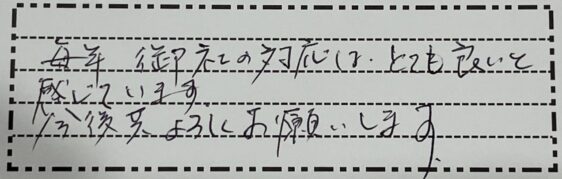 毎年 御社の対応は、とても良いと
感じています。
今後共よろしくお願いします。